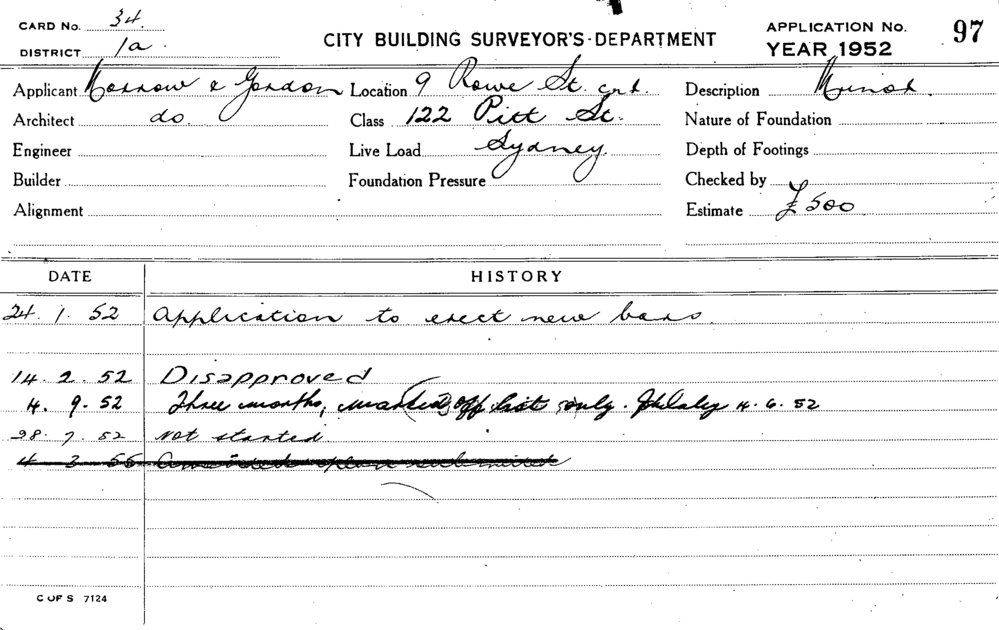 CARD No. 34.
DISTRICT 1a.
CITY BUILDING SURVEYOR'S DEPARTMENT
APPLICATION No. 97
YEAR 1952
Applicant Morrow & Gordon Location 9 Rowe St. cnr. Description Minor.
Architect do. Class 122 Pitt St. Nature of Foundation
Engineer Live Load Sydney Depth of Footings
Builder Foundation Pressure Checked by
Alignment Estimate £500
DATE HISTORY
24. 1. 52 Application to erect new bars
14. 2. 52 Disapproved
4. 9. 52 Three months, marked off list only. 4. 6. 52
28. 7. 52 Not started
4 3 55 Amended plan submitted
C OF S 7124